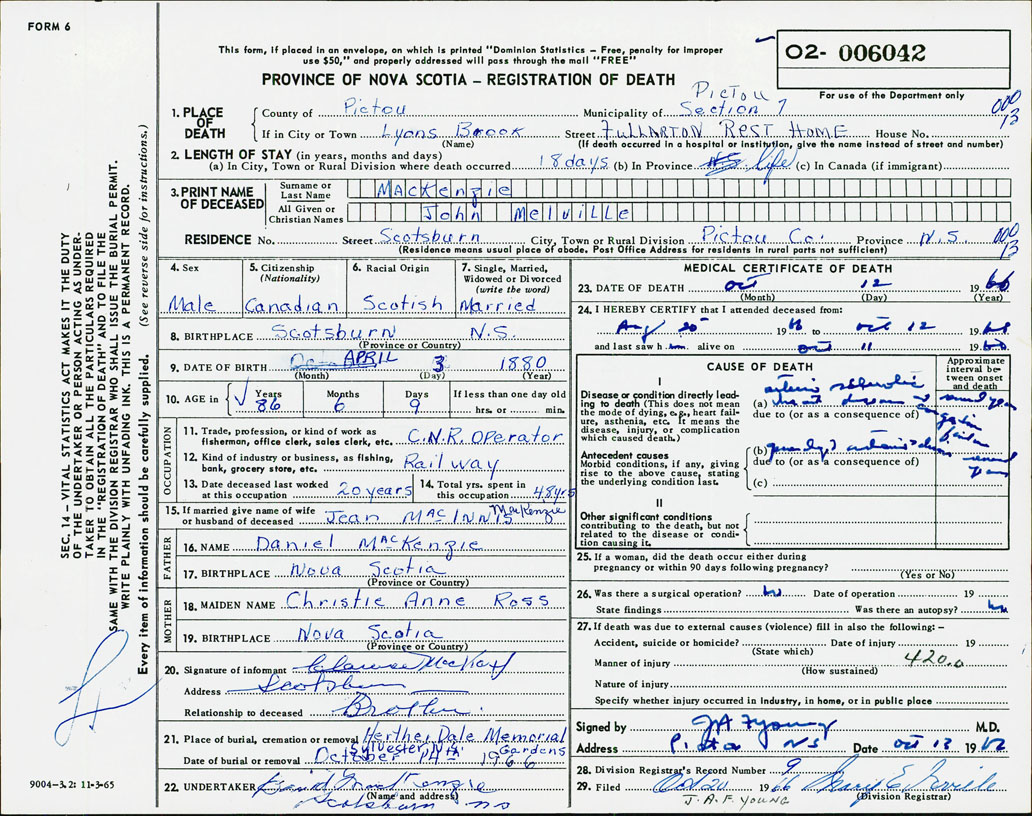 FORM 6
This form, if placed in an envelope, on which is printed "Dominion Statistics – Free, penalty for improper
use $50," and properly addressed will pass through the mail "FREE"
O2- 006042
For use of the Department only
PROVINCE OF NOVA SCOTIA – REGISTRATION OF DEATH
1. PLACE OF DEATH
County of Pictou Municipality of Pictou Section 7
000 13
If in City or Town Lyons Brook Street Fullarton Rest Home House No.
(Name) (If death occurred in a hospital or institution, give the name instead of street and number)
2. LENGTH OF STAY (in years, months and days)
(a) In City, Town or Rural Division where death occurred 18 days (b) In Province life (c) In Canada (if immigrant)
3. PRINT NAME OF DECEASED
Surname or Last Name MacKenzie
All Given or Christian Names John Melville
RESIDENCE No. Street Scotsburn City, Town or Rural Division Pictou Co. Province N.S
000 13
(Residence means usual place of abode. Post Office Address for residents in rural parts not sufficient)
4. Sex
Male
5. Citizenship
(Nationality)
Canadian
6. Racial Origin
Scotish
7. Single, Married,
Widowed or Divorced
(write the word)
Married
8. BIRTHPLACE Scotsburn N.S.
(Province or Country)
9. DATE OF BIRTH APRIL 3 1880
(Month) (Day) (Year)
10. AGE in Years Months Days If less than one day old
86 6 9 hrs. or min.
OCCUPATION
11. Trade, profession, or kind of work as
fisherman, office clerk, sales clerk, etc. C.N.R. Operator
12. Kind of industry or business, as fishing,
bank, grocery store, etc. Railway
13. Date deceased last worked
at this occupation 20 years
14. Total yrs. spent in
this occupation 48 yrs
15. If married give name of wife
or husband of deceased Jean MacInnis MacKenzie
FATHER
16. NAME Daniel MacKenzie
17. BIRTHPLACE Nova Scotia
(Province or Country)
MOTHER
18. MAIDEN NAME Christie Anne Ross
19. BIRTHPLACE Nova Scotia
(Province or Country)
20. Signature of informant MacKay
Address Scotsburn
Relationship to deceased Brother
21. Place of burial, cremation or removal Dale Memorial Gardens
Sylvester, N.S.
Date of burial or removal October 14th 1966
22. UNDERTAKER David MacKenzie
(Name and address)
Scotsburn NS
MEDICAL CERTIFICATE OF DEATH
23. DATE OF DEATH Oct 12 1966
(Month) (Day) (Year)
24. I HEREBY CERTIFY that I attended deceased from:
Aug 20 19 to Oct 12 19
and last saw h im alive on Oct 11 19
CAUSE OF DEATH
Approximate
interval be-
tween onset
and death
I
Disease or condition directly lead-
ing to death (This does not mean
the mode of dying, e.g., heart fail-
ure, asthenia, etc. It means the
disease, injury, or complication
which caused death.)
(a) arterio sclerotic heart disease
due to (or as a consequence of)
Antecedent causes
Morbid conditions, if any, giving
rise to the above cause, stating
the underlying condition last.
(b)
due to (or as a consequence of)
(c)
II
Other significant conditions
contributing to the death, but not
related to the disease or condi-
tion causing it.
25. If a woman, did the death occur either during
pregnancy or within 90 days following pregnancy?
(Yes or No)
26. Was there a surgical operation? no Date of operation 19
State findings Was there an autopsy? no
27. If death was due to external causes (violence) fill in also the following: –
Accident, suicide or homicide? Date of injury 19
(State which)
420.0
Manner of injury
(How sustained)
Nature of injury
Specify whether injury occurred in Industry, in home, or in public place
Signed by J A F Young M.D.
Address Pictou NS Date Oct 13 19
28. Division Registrar's Record Number 9
29. Filed Oct 20 1966
(Division Registrar)
J. A. F. YOUNG
SEC. 14 – VITAL STATISTICS ACT MAKES IT THE DUTY
OF THE UNDERTAKER OR PERSON ACTING AS UNDER-
TAKER TO OBTAIN ALL THE PARTICULARS REQUIRED
IN THE "REGISTRATION OF DEATH" AND TO FILE THE
SAME WITH THE DIVISION REGISTRAR WHO SHALL ISSUE THE BURIAL PERMIT.
WRITE PLAINLY WITH UNFADING INK. THIS IS A PERMANENT RECORD.
Every item of information should be carefully supplied. (See reverse side for instructions.)
9004–3.2: 11-3-65